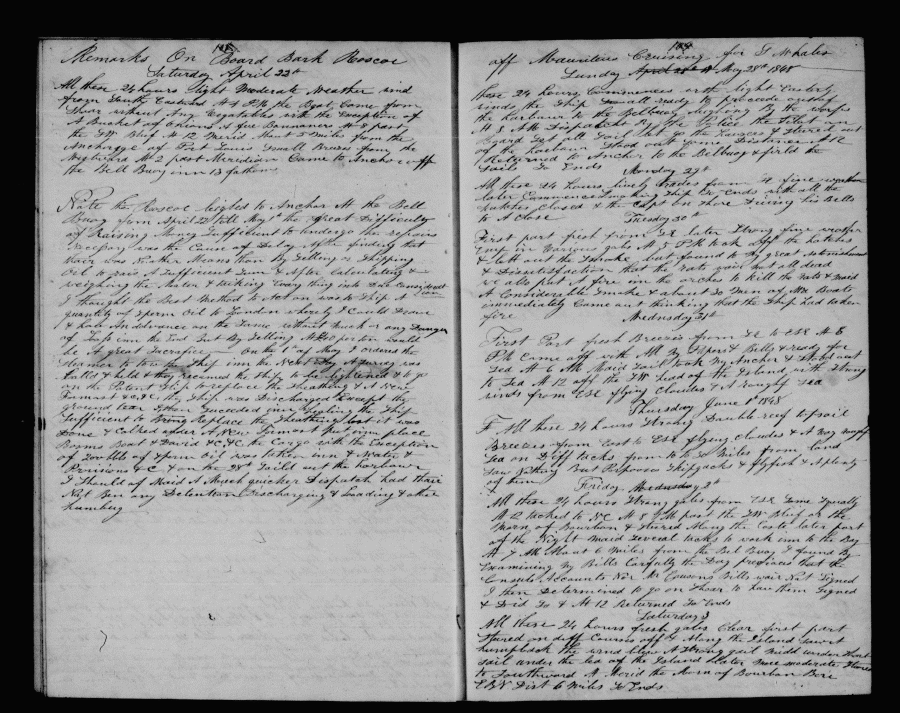 Remarks On Board Bark Roscoe
Saturday April 22nd
All these 24 hours light Moderate Weather wind
from South Eastward At 5 PM the Boat Came from
Shoar without Any Vegatables with the Exception of
A Bunch of onions A few Bannanas At 8 past
the SW Bluf At 12 Miles from the
Anchorage of Port Louis Small Breezes from the
Westward At 2 past Meridian Came to Anchor off
the Bell Buoy inn 13 fathoms
Note the Roscoe leighed to Anchor At the Bell
Buoy from April 22 till May 1st the great Difficulty
of Raising Money Sufficient to undergo the repairs
was the Cause of Delay After finding that
thair was No other Means than By Selling or Shipping
Oil to rais A Sufficient Sum & After Calculating &
weighing the Matter & taking Every thing into Due Consideration
I thought the Best Method to Act on was to Ship A
quantity of Sperm Oil to London whereby I Could Draw
& have An advance on the Same without much or any Danger
of Loss inn the End But By Selling At would
be A great Sacrifice On the 1st of May I ordered the
Steamer to tow the Ship inn the Next Day A Survey was
Calld & held they the Ship to be lightened & go
on the Patent Slip to replace the Sheathing & A New
Foremast &c &c the Ship was Discharged Except the
ground teer & then Succeded inn the Ship
Sufficient to Bring Replace the Sheathing that it was
Done & Calked under A New Foremast Put inn place
Booms Boat & David &c &c the Cargo with the Exception
of 200 bbls of Sperm Oil was taken inn & Water &
Provisions &c & on the 28th Saild out the harbour
I Should of Maid A Much quicker Dispatch had thair
Not Ben any Detention Discharging & Loading & other
humbug
off Mauritius Cruising for S Whales
Sunday May 28th 1848
these 24 hours Commences with light Easterly
winds the Ship all ready to procede out of
the harbour to the Bellbuoy
At 8 AM the Pilot Came on
Board Sail
of the harbour Stood out Some Distance
Returned to Anchor to the Bellbuoy & firld the
Sails So Ends
Monday 29th
All these 24 hours lively trades from fine weather
later Commences the Ship So Ends with all the
hatches Closed & the Capt on Shore Diving his Bills
to A Close
Tuesday 30th
First part fresh from SE later Strong fine weather
Ends in Various jobs At 5 PM took off the hatches
& lett out the Smoke but found to My great Astonishment
& Dissatisfaction that the rats wair not all dead
we also put A fire inn the arches to kill the rats & Maid
A Considerable Smoke & about 20 Men of War Boats
immediately Came out thinking that the Ship had taken
fire
Wednesday 31st
First Part fresh Breezes from SE to ESE At 5
PM Came off with All My Papers & Bills & ready for
Sea At 6 AM Maid Sail took My Anchor & Stood out
to Sea M 12 off the SW head of the Island with Strong
winds from ESE flying Clouds & A rough Sea
Thursday June 1st 1848
All these 24 hours Strong Double reef topsail
Breezes from East to ESE flying Clouds & A Very rough
Sea on Diff tacks from to 30 Miles from land
Saw Nothing But Porpoces Skipjacks & flyfish & A plenty
of them
Friday 2nd
All these 24 hours Strong gales from ESE Some Squally
At 12 tacked to NE At 8 PM past the SW Bluf or the
Morn of Bourbon & Stured Along the Coste later part
of the Night Maid Several tacks to work inn to the Bay
At 7 AM About 6 Miles from the Bell Buoy I found By
Examining My Bills Carfully the Day previous that the
Consuls Accounts Nor Mr Cousons Bills wair Not Signed
I then Determined to go on Shoar to have them Signed
& Did So & At 12 Returned So Ends
Saturday 3
All these 24 hours fresh gales Clear first part
Stured on diff Courses off & Along the Island
humpback the wind blew A Strong gail Middl under Short
Sail under the lea of the Island later More moderate Stured
to Southward At Merid the Morn of Bourban Bore
EBN Dist 6 Miles So Ends